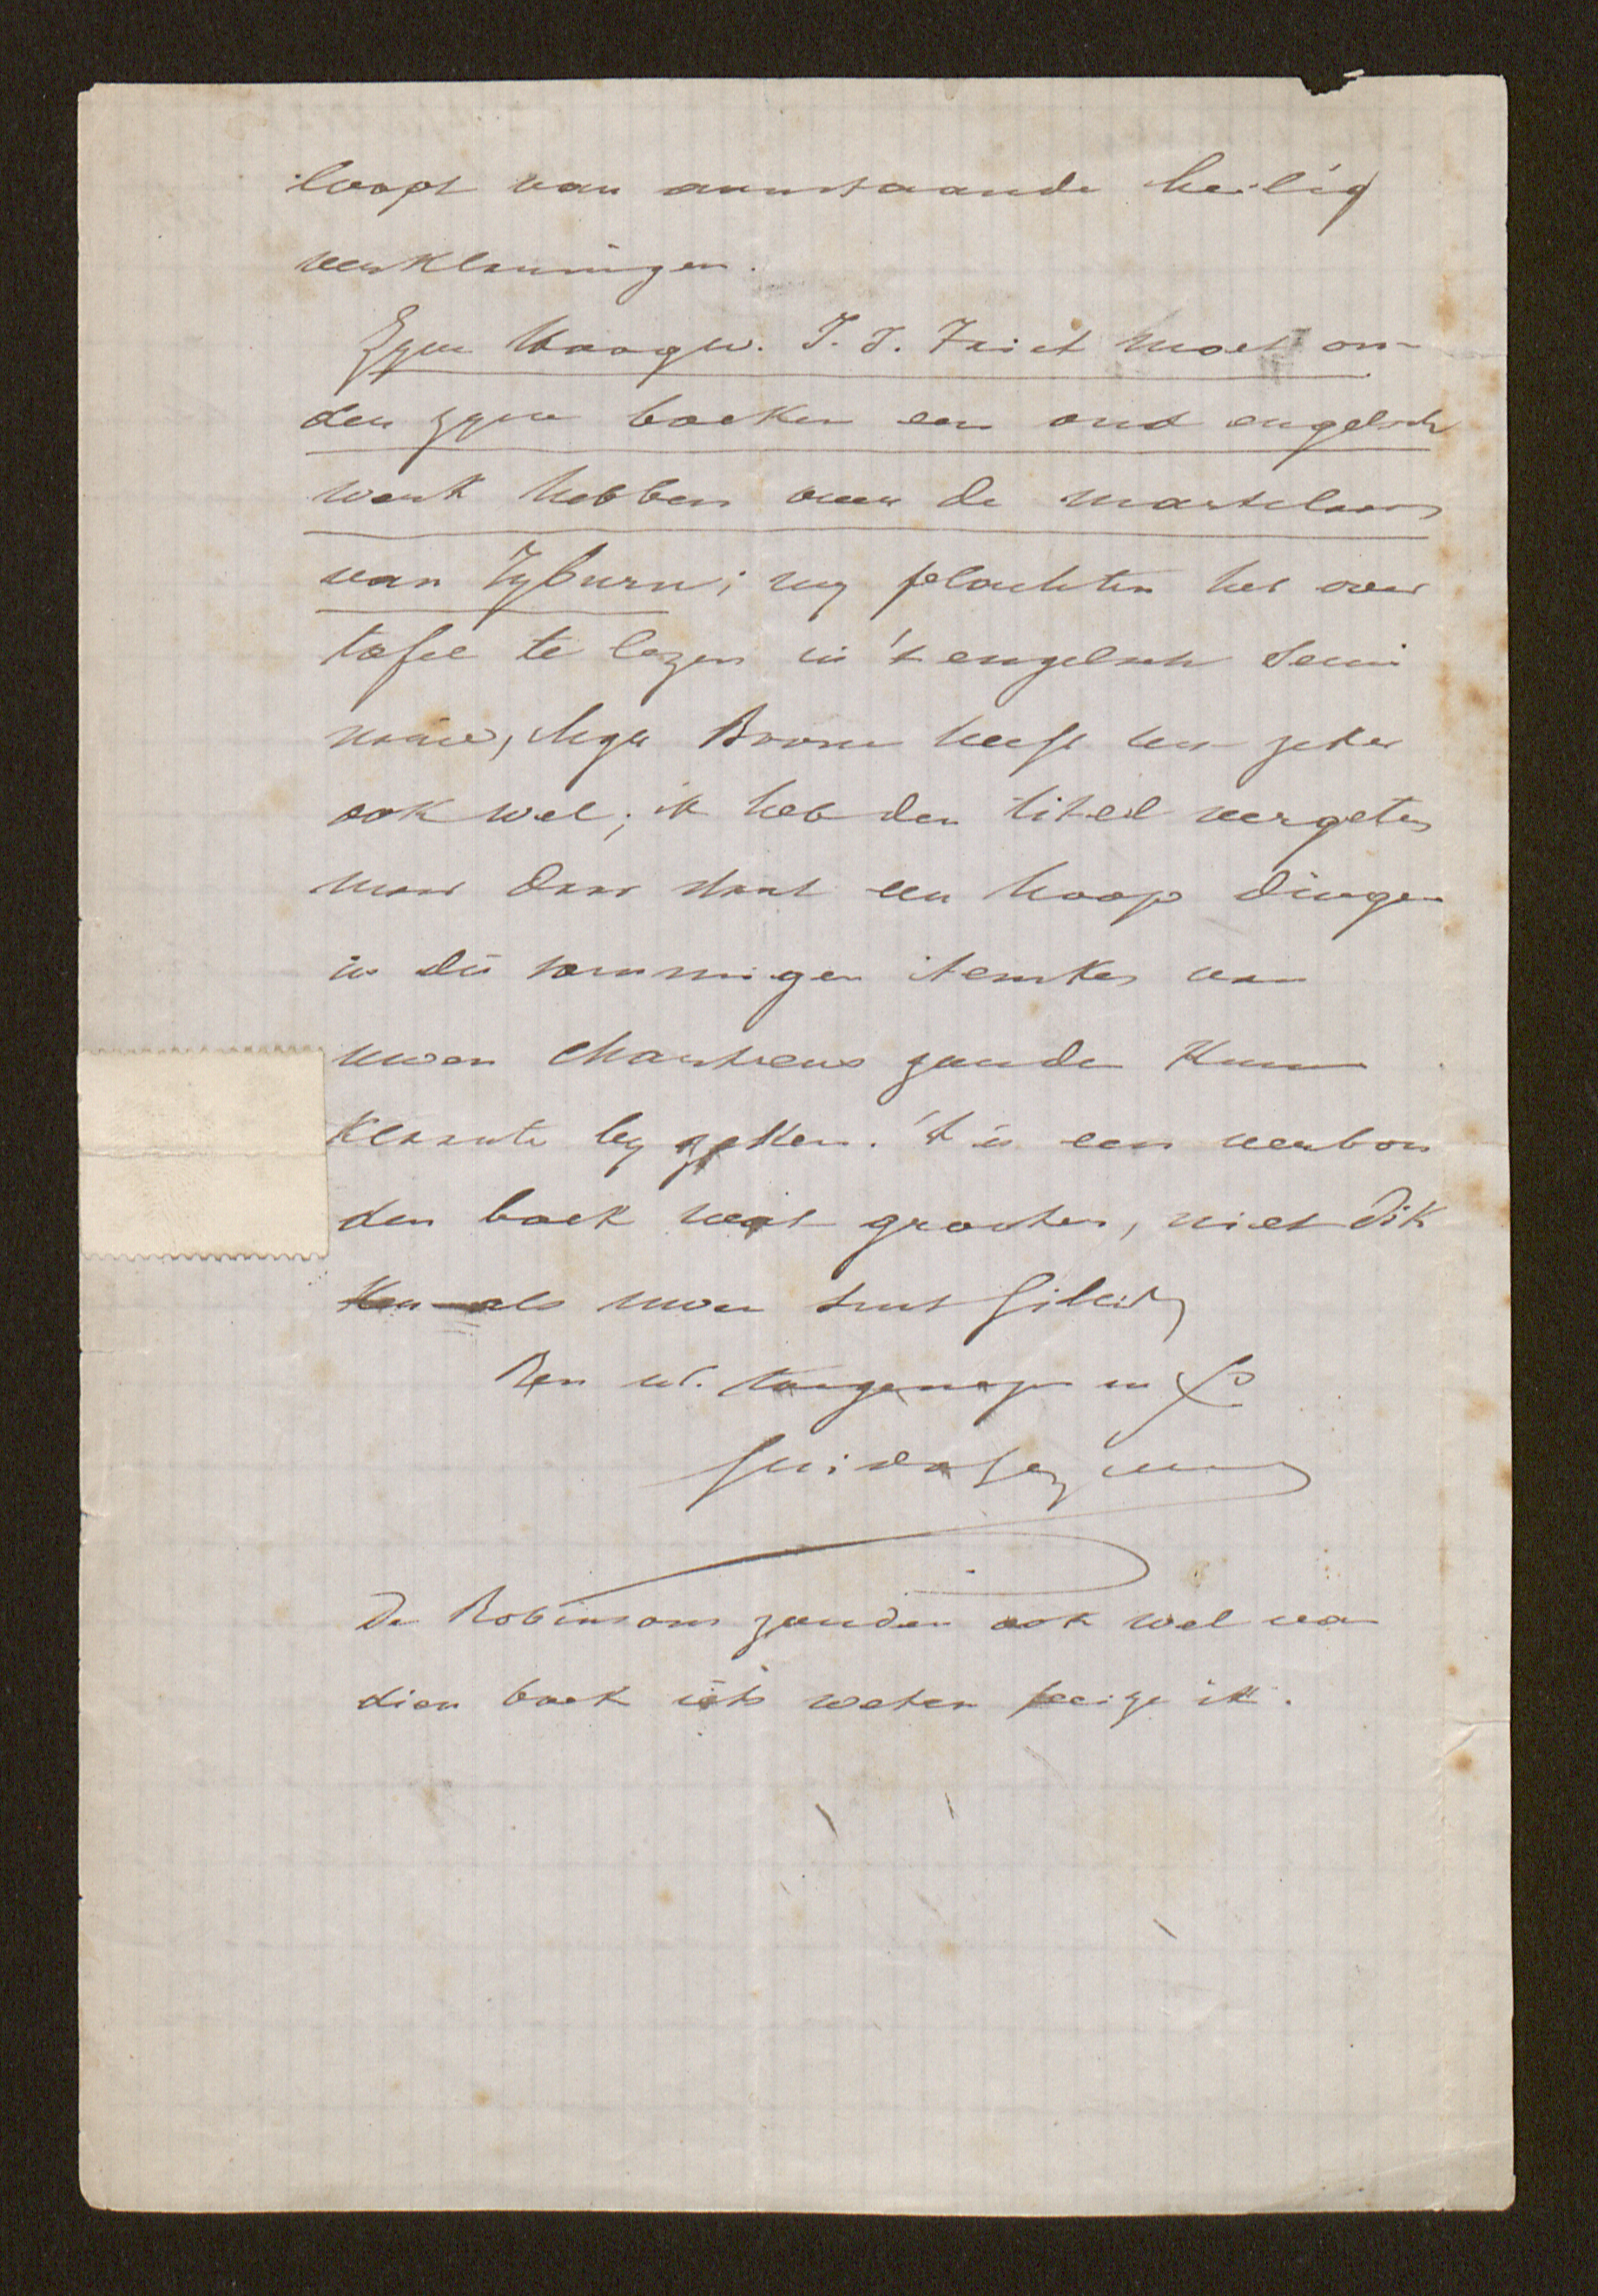 loopt van aanstaande heilig
verklaringen.
Zyne Hoogw. J. J. Faict moet on-
der zyne boeken een oud engelsch
werk hebben over de martelaars
van Tyburn; wy plachten het over
tafel te lezen in 't engelsch Semi
narie, Mgr Brown heeft het zeker
ook wel; ik heb den titel vergeten
maar daar staat een hoop dingen
in die sommigen itemkes van
uwen Chartreus zouden kunnen
klaarte by zetten. 't is een verbon
den boek wat grooter, niet dik
ker als uwen
Ben ul. toegenegen in Xo
Guido Gezelle
De Robinsons zouden ook wel van
dien boek iets weten peize ik.